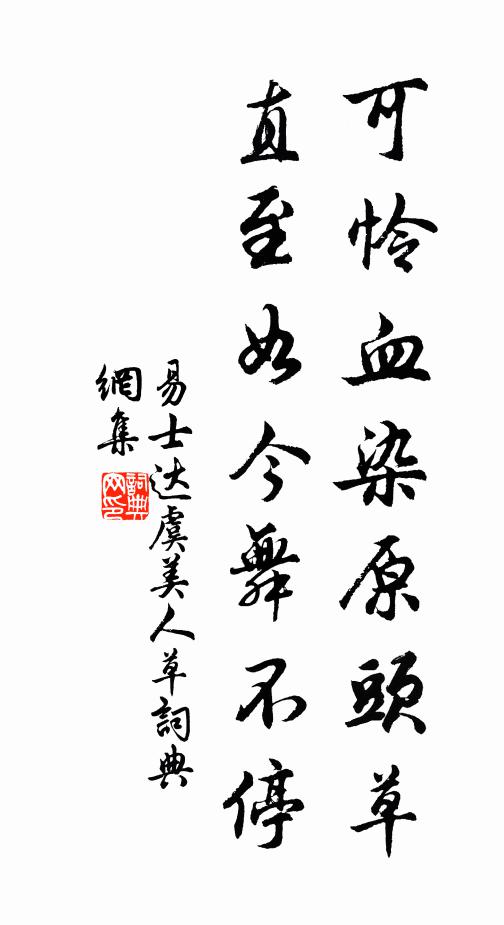 可怜血染原頭草
直至如今舞不停
易士达虞美人草詞典
網集
詞典
网印